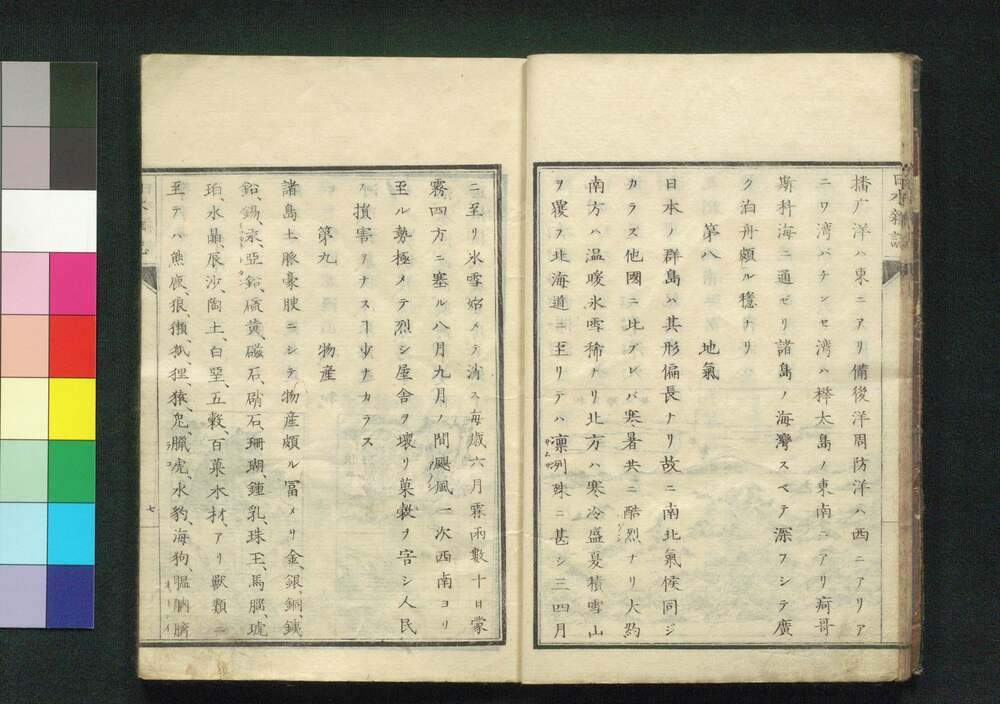 日本雑誌
播广洋ハ東ニアリ備後洋周防洋ハ西ニアリア
ニワ湾パチンセ湾ハ樺太島ノ東南ニアリ疴哥
斯科海ニ通ゼリ諸島ノ海灣スベテ深フシテ廣
ク泊舟頗ル穩ナリ
第八 地氣
日本ノ群島ハ其形偏長ナリ故ニ南北氣候同ジ
カラズ他國ニ比ブレバ寒暑共ニ酷烈ナリ大約
南方ハ温暖氷雪稀ナリ北方ハ寒冷盛夏積雪山
ヲ覆フ北海道ニ至リテハ凛冽殊ニ甚シ三四月
ニ至リ氷雪始メテ消ス毎歳六月霖雨數十日蒙
霧四方ニ塞ル八月九月ノ間颶風一次西南ヨリ
至ル勢極メテ烈シ屋舎ヲ壊リ菓穀ヲ害シ人民
ノ損害ヲナスヿ少ナカラス
第九 物産
諸島土脉豪腴ニシテ物産頗ル冨メリ金、銀、銅、鐵、
鉛、錫、汞、亞鉛、硫黄、磁石、硝石、珊瑚、鍾乳、珠玉、馬腦、琥
珀、水晶、辰沙、陶土、白堊、五穀、百菓、木材、アリ獸類ニ
至テハ熊、鹿、狼、獺、狐、狸、猿、兎、臘虎、水豹、海狗、膃肭臍
七